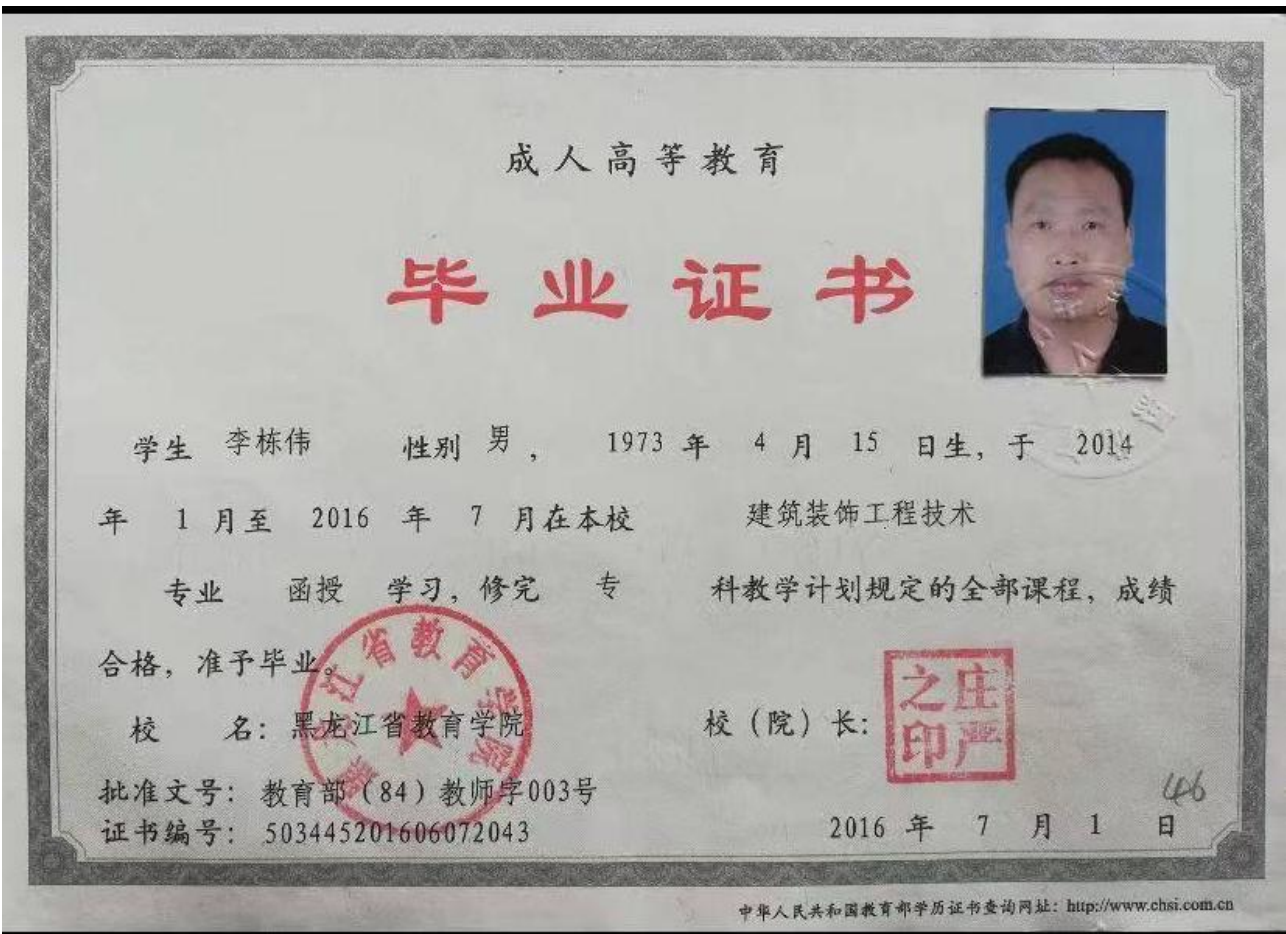 成人高等教育
毕业证书
学生 李栋伟 性别 男 ， 1973 年 4 月 15 日生，于 2014
年 1 月至 2016 年 7 月在本校 建筑装饰工程技术
专业 函授 学习，修完 专 科教学计划规定的全部课程，成绩
合格，准予毕业。
黑龙江省教育学院
校 名：黑龙江省教育学院 校（院）长：
庄严之印
批准文号：教育部（84）教师字003号
446
证书编号：503445201606072043 2016 年 7 月 1 日
中华人民共和国教育部学历证书查询网址：http://www.chsi.com.cn